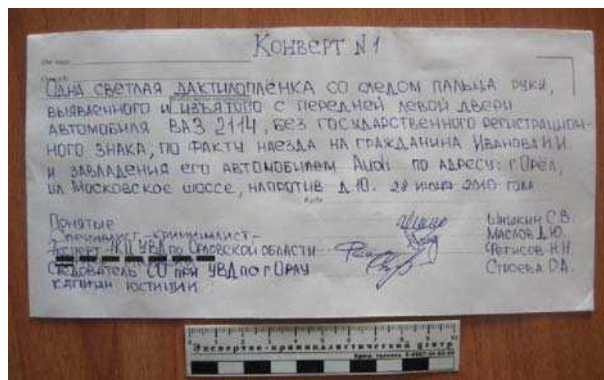 КОНВЕРТ N1
ОДНА СВЕТЛАЯ ДАКТИЛОПЛЁНКА СО СЛЕДОМ ПАЛЬЦА РУКИ,
ВЫЯВЛЕННОГО И ИЗЪЯТОГО С ПЕРЕДНЕЙ ЛЕВОЙ ДВЕРИ
АВТОМОБИЛЯ ВАЗ 2114, БЕЗ ГОСУДАРСТВЕННОГО РЕГИСТРАЦИОН-
НОГО ЗНАКА, ПО ФАКТУ НАЕЗДА НА ГРАЖДАНИНА ИВАНОВА И.И.
И ЗАВЛАДЕНИЯ ЕГО АВТОМОБИЛЕМ Audi ПО АДРЕСУ: Г. ОРЁЛ,
УЛ МОСКОВСКОЕ ШОССЕ, НАПРОТИВ Д.10. 28 ИЮЛЯ 2010 ГОДА
ПОНЯТЫЕ ШИШКИН С.В.
СПЕЦИАЛИСТ-КРИМИНАЛИСТ- МАСЛОВ Д.Ю.
ЭКСПЕРТ ЭКЦ УВД ПО ОРЛОВСКОЙ ОБЛАСТИ ФЕТИСОВ Н.Н.
СЛЕДОВАТЕЛЬ СО ПРИ УВД ПО Г ОРЛУ О.А.
КАПИТАН ЮСТИЦИИ
Экспертно-криминалистический центр